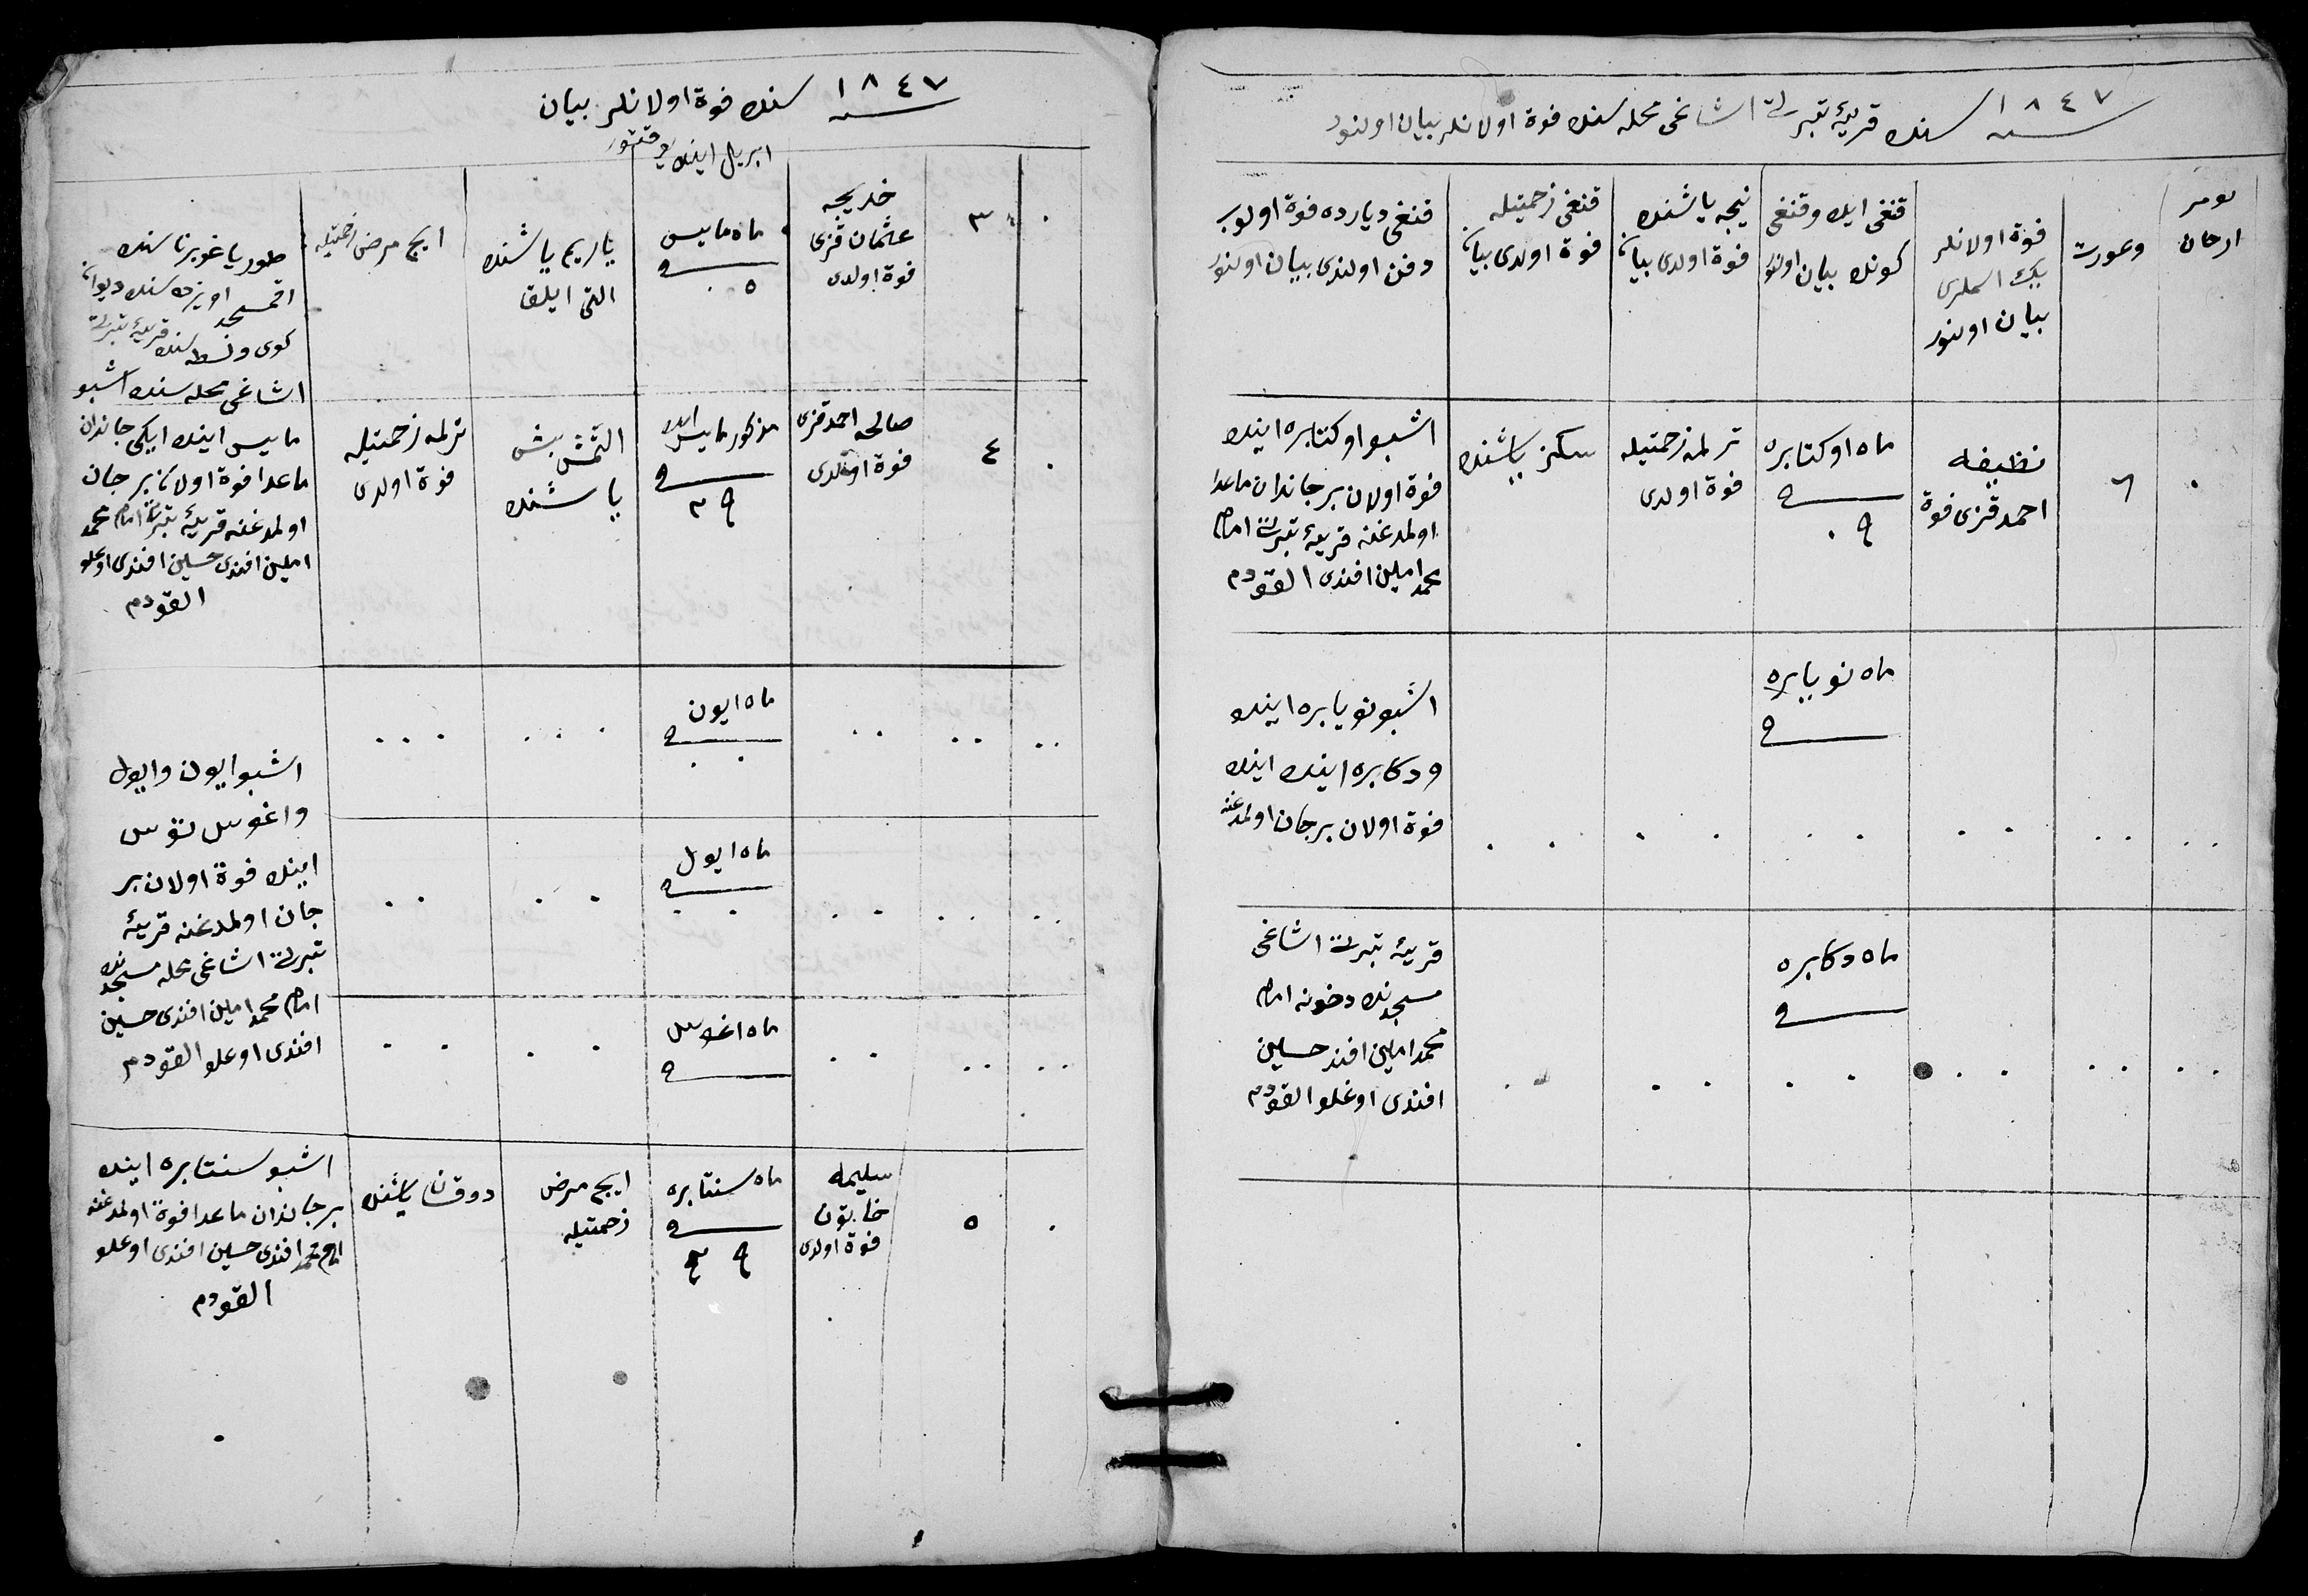 ١٨٤٧ سنه سنده قریهٔ تبرتى اشاغى محله سنده فوة اولانلر بیان اولنور
نومر
ارجان
وعورت
فوة اولانلر
بیان اولنور
قنغى ایده وقنغى
كونده بیان اولنور
نیجه یاشنده
فوة اولدى بیان
قنغى زحمتیله
فوة اولدى بیان
قنغى دیارده فوة اولوب
دفن اولندى بیان اولنور
٠
٦
نظیفه
احمد قزى فوة
ماه اوكتابره
فى
٩ ٠
ترلمه زحمتیله
فوة اولدى
سكز یاشنده
اشبو اوكتابره اینده
فوة اولان بر جاندان ماعدا
اولمدغنه قریهٔ تبرتى امام
محمد امین افندى القودم
ماه نویابره
فى
اشبو نویابره اینده
ودكابره اینده اینده
فوة اولان بر جان اولمدغنه
ماه دكابره
فى
قریهٔ تبرتى اشاغى
مسجدنك امام
محمد امین افند حسین
افندى اوغلو القودم
١٨٤٧ سنه سنده فوة اولانلر بیان
ابریل اینده یوقتور
٠
٣
خدیجه
عثمان قزى
فوة اولدى
ماه مایس
فى
٥ ٠
یاریم یاشنده
التى ایلق
ایچ مرض زحمتیله
اقمسجد اویزده سنده
كوى قریهٔ تبرتى
اشاغى محله سنده اشبو
مایس اینده ایكى جاندان
ماعدا فوة اولان بر جان
اولمدغنه قریهٔ تبرتى امام محمد
امین افندى حسین افندى اوغلو
القودم
٠
٤
صالحه احمد قزى
فوة اولدى
مذكور مایس اینده
فى
٢٩
التمش بش
یاشنده
ترلمه زحمتیله
فوة اولدى
ماه ایون
فى
اشبو ایون وایول
واغوس
اینده فوة اولان بر
جان اولمدغنه قریهٔ
تبرتى اشاغى محله مسجدنك
امام محمد امین افندى حسین
افندى اوغلو القودم
ماه ایول
فى
ماه اغوس
فى
٠
٥
سلیمه
خاتون
فوة اولدى
ماه سنتابره
فى
ایچ مرض
زحمتیله
دوقسان یاشنده
اشبو سنتابره اینده
بر جاندان ماعدا فوة اولمدغنه
امام محمد افندى حسین افندى اوغلو
القودم